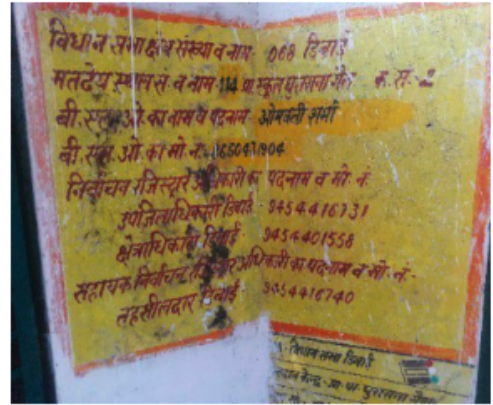 विधान सभा क्षेत्र संख्या व नाम- 068 डिबाई
मतदेय स्थल स. व नाम 114 प्रा स्कूल क. सं.-2
बी. एल. ओ. का नाम व पदनाम- ओमवती शर्मा
बी. एल. ओ. का मो. नं.
निर्वाचन रजिस्ट्रार अधिकारी का पदनाम व मो. नं.
उपजिलाधिकारी डिबाई - 9454416731
क्षेत्राधिकारी डिबाई - 9454401558
सहायक निर्वाचन रजिस्ट्रार अधिकारी का पदनाम व मो. नं.-
तहसीलदार डिबाई - 9454416740
विधान सभा डिबाई